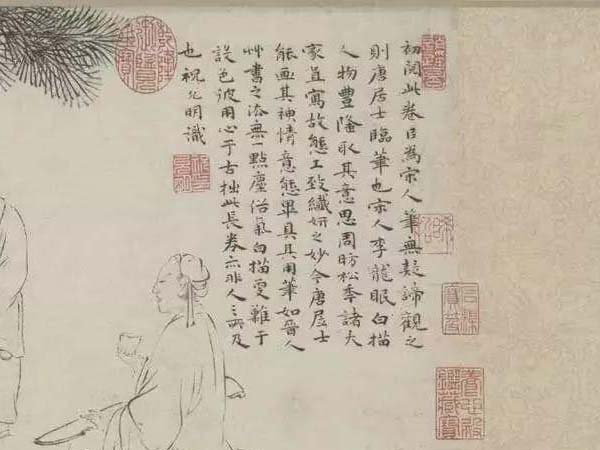 初閱此卷㠯為宋人筆無疑諦觀之
則唐居士臨筆也宋人李龍眠白描
人物豐隆取其意思周昉松季諸大
家直寫故態工致纖妍之妙今唐居士
能画其神情意態畢具其用筆如晉人
艸書之法無一點塵俗氣白描更難于
設色彼用心于古拙此長卷亦非人之所及
也祝允明識
石渠寶笈
養心殿鑑藏寶